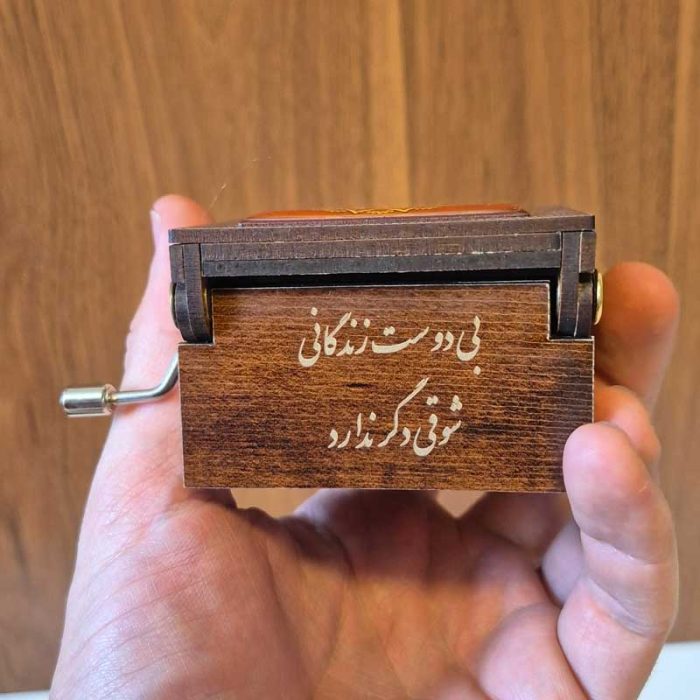 بی دوست زندگانی
شوقی دگر ندارد